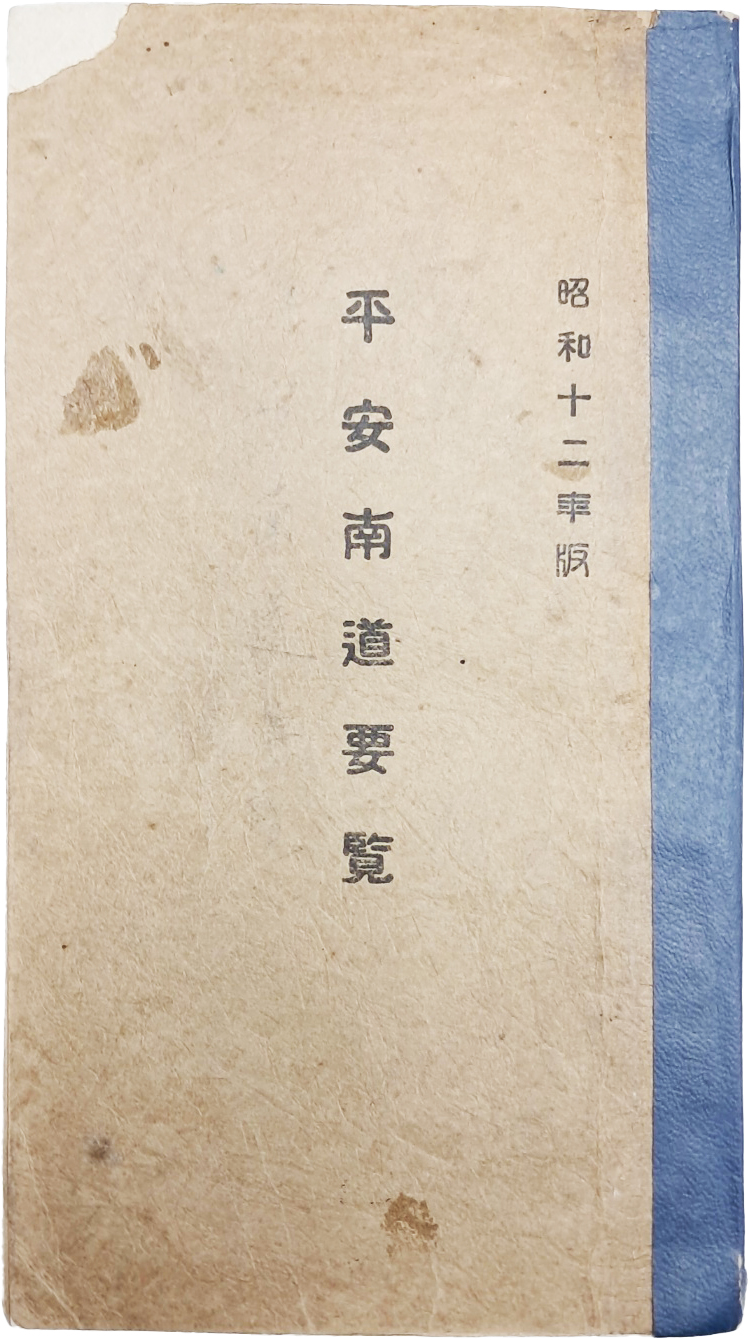 昭和十二年版
平安南道要覧